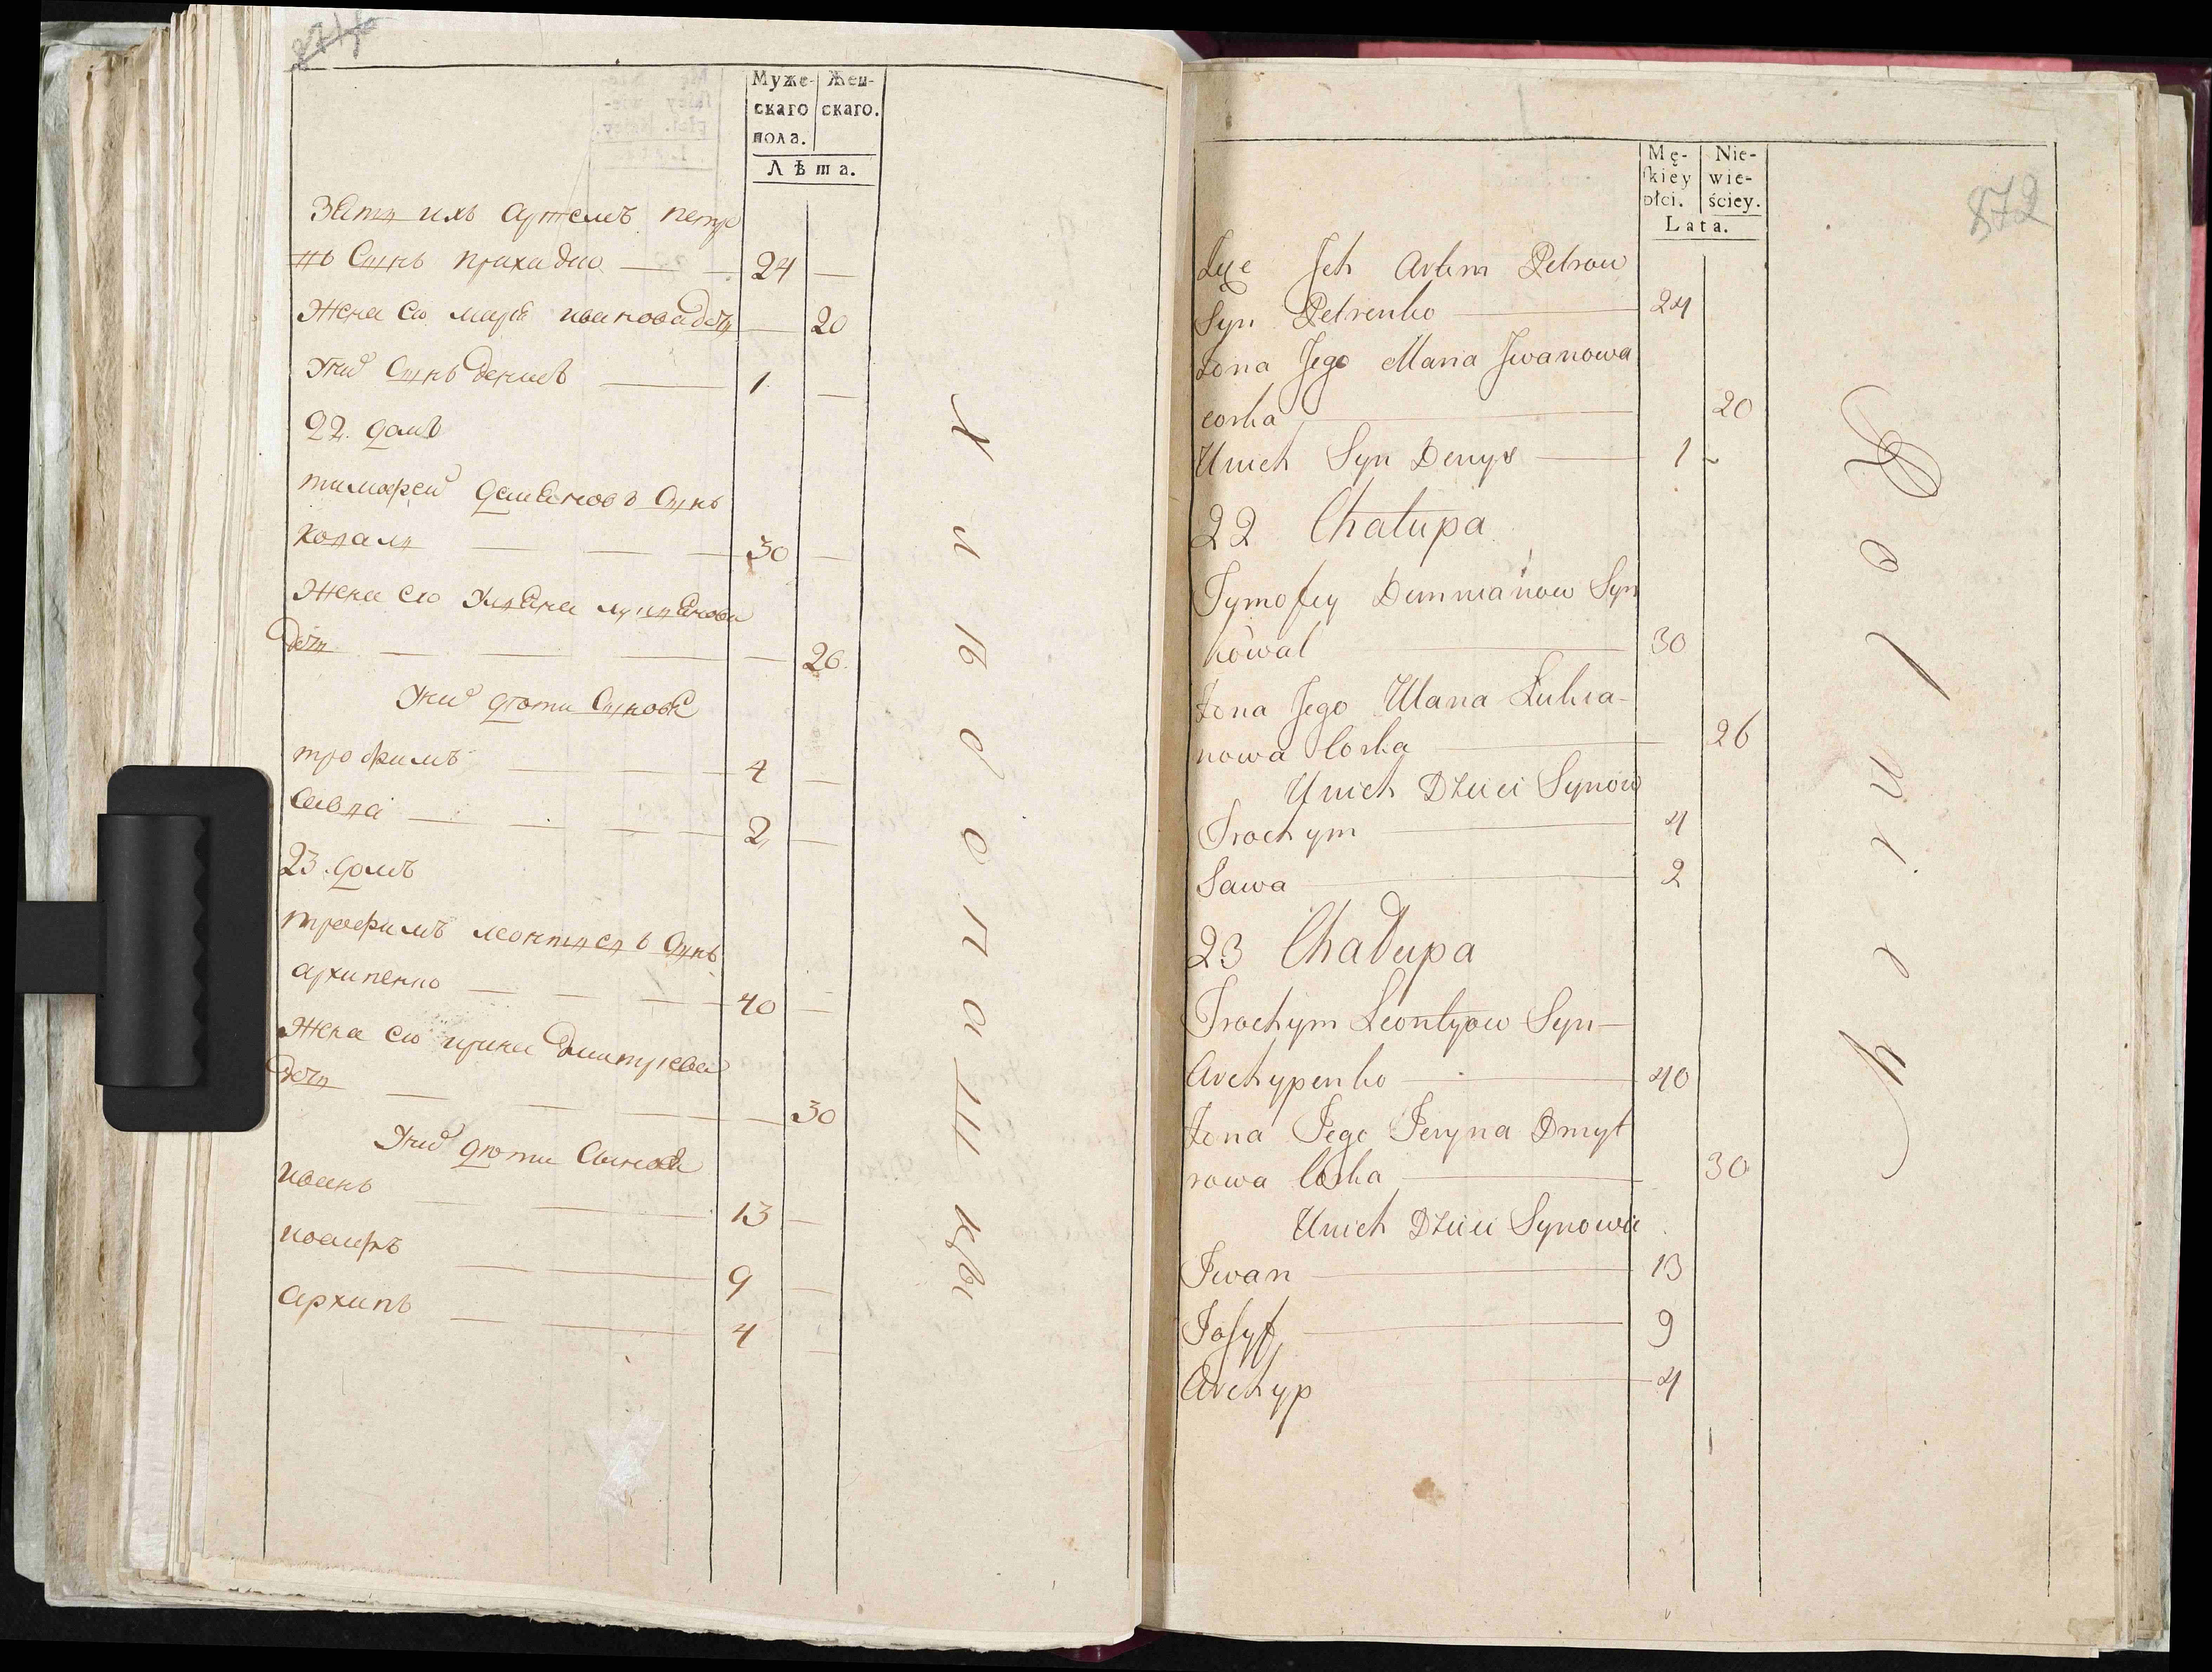 Муже-
скаго
пола.
Жен-
скаго.
Лѣта.
Зять ихъ Артемъ петро
въ Сынъ
24
Жена его марья иванова дочь
20
У них Сынъ денисъ
1
22. домъ
тимофей демьяновъ Сынъ
коваль
30
Жена его Ульяна лукьянова
дочь
26.
У них дѣти Сыновья
трофимъ
4
Савва
2
23. домъ
трофимъ леонтьевъ Сынъ
архипенко
40
Жена его ирина дмитриева
дочь
30
У них дѣти Сыновья
иванъ
13
иосифъ
9
архипъ
4
Хлѣбопашцы
872
Mę-
skiey
płci.
Nie-
wie-
ściey.
Lata.
Jch Artem Petrow
Syn Petrenko
24
Żona Jego Maria Jwanowa
corka
20
Unich Syn Denys
1
22 Chałupa
Tymofey Demmianow Syn
kowal
30
Żona Jego Ulana Łukia-
nowa Corka
26
Unich Dzieci Synow
Trochym
4
Sawa
2
23 Chałupa
Trochym Leontyow Syn
Archypenko
40
Żona Jego Jeryna Dmyt
rowa Corka
30
Unich Dzieci Synowie
Jwan
13
Josyf
9
Archyp
4
Rolnicy